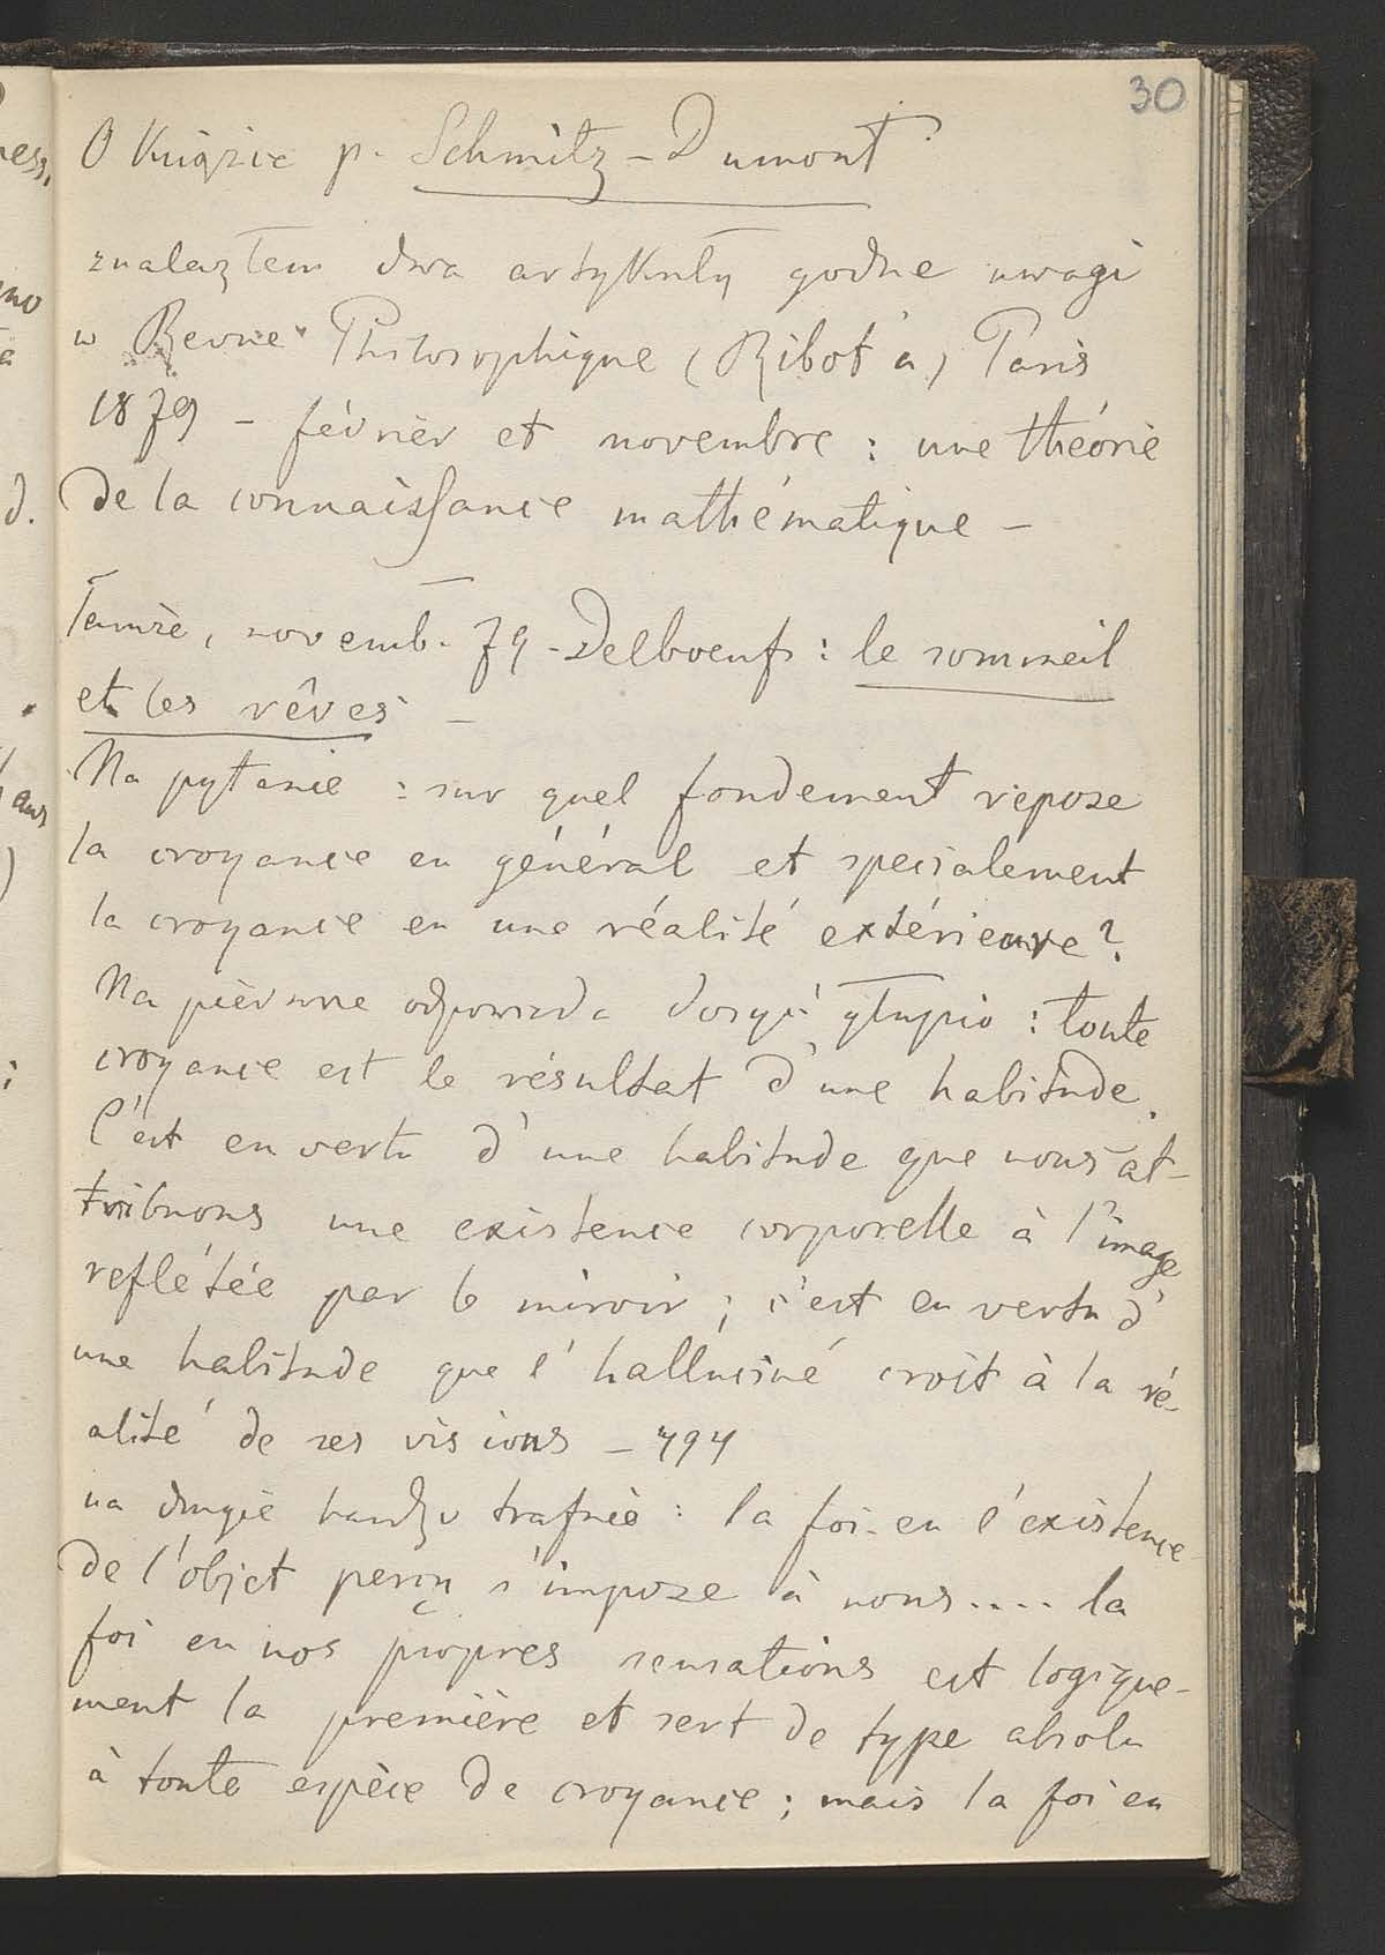 30
O książce p. Schmitz-Dumont
znalazłem dwa artykuły godne uwagi
w Revue Philosophique (Ribot'a) Paris
1879 - février et novembre : une théorie
de la connaissance mathématique -
Tamże, novemb. 79 - Delboeuf : le sommeil
et les rêves -
Na pytanie : sur quel fondement repose
la croyance en général et specialement
la croyance en une réalité extérieure?
Na pierwsze odpowiada dosyć głupio : toute
croyance est le résultat d'une habitude.
C'est en vertu d'une habitude que nous at-
tribuons une existence corporelle à l'image
reflétée par le miroir ; c'est en vertu d'
une habitude que l'halluciné croit à la ré-
alité de ses visions - 494
na drugie bardzo trafnie : la foi en l'existence
de l'objet perçu s'impose à nous.... la
foi en nos propres sensations est logique-
ment la première et sert de type absolu
à toute espèce de croyance ; mais la foi en